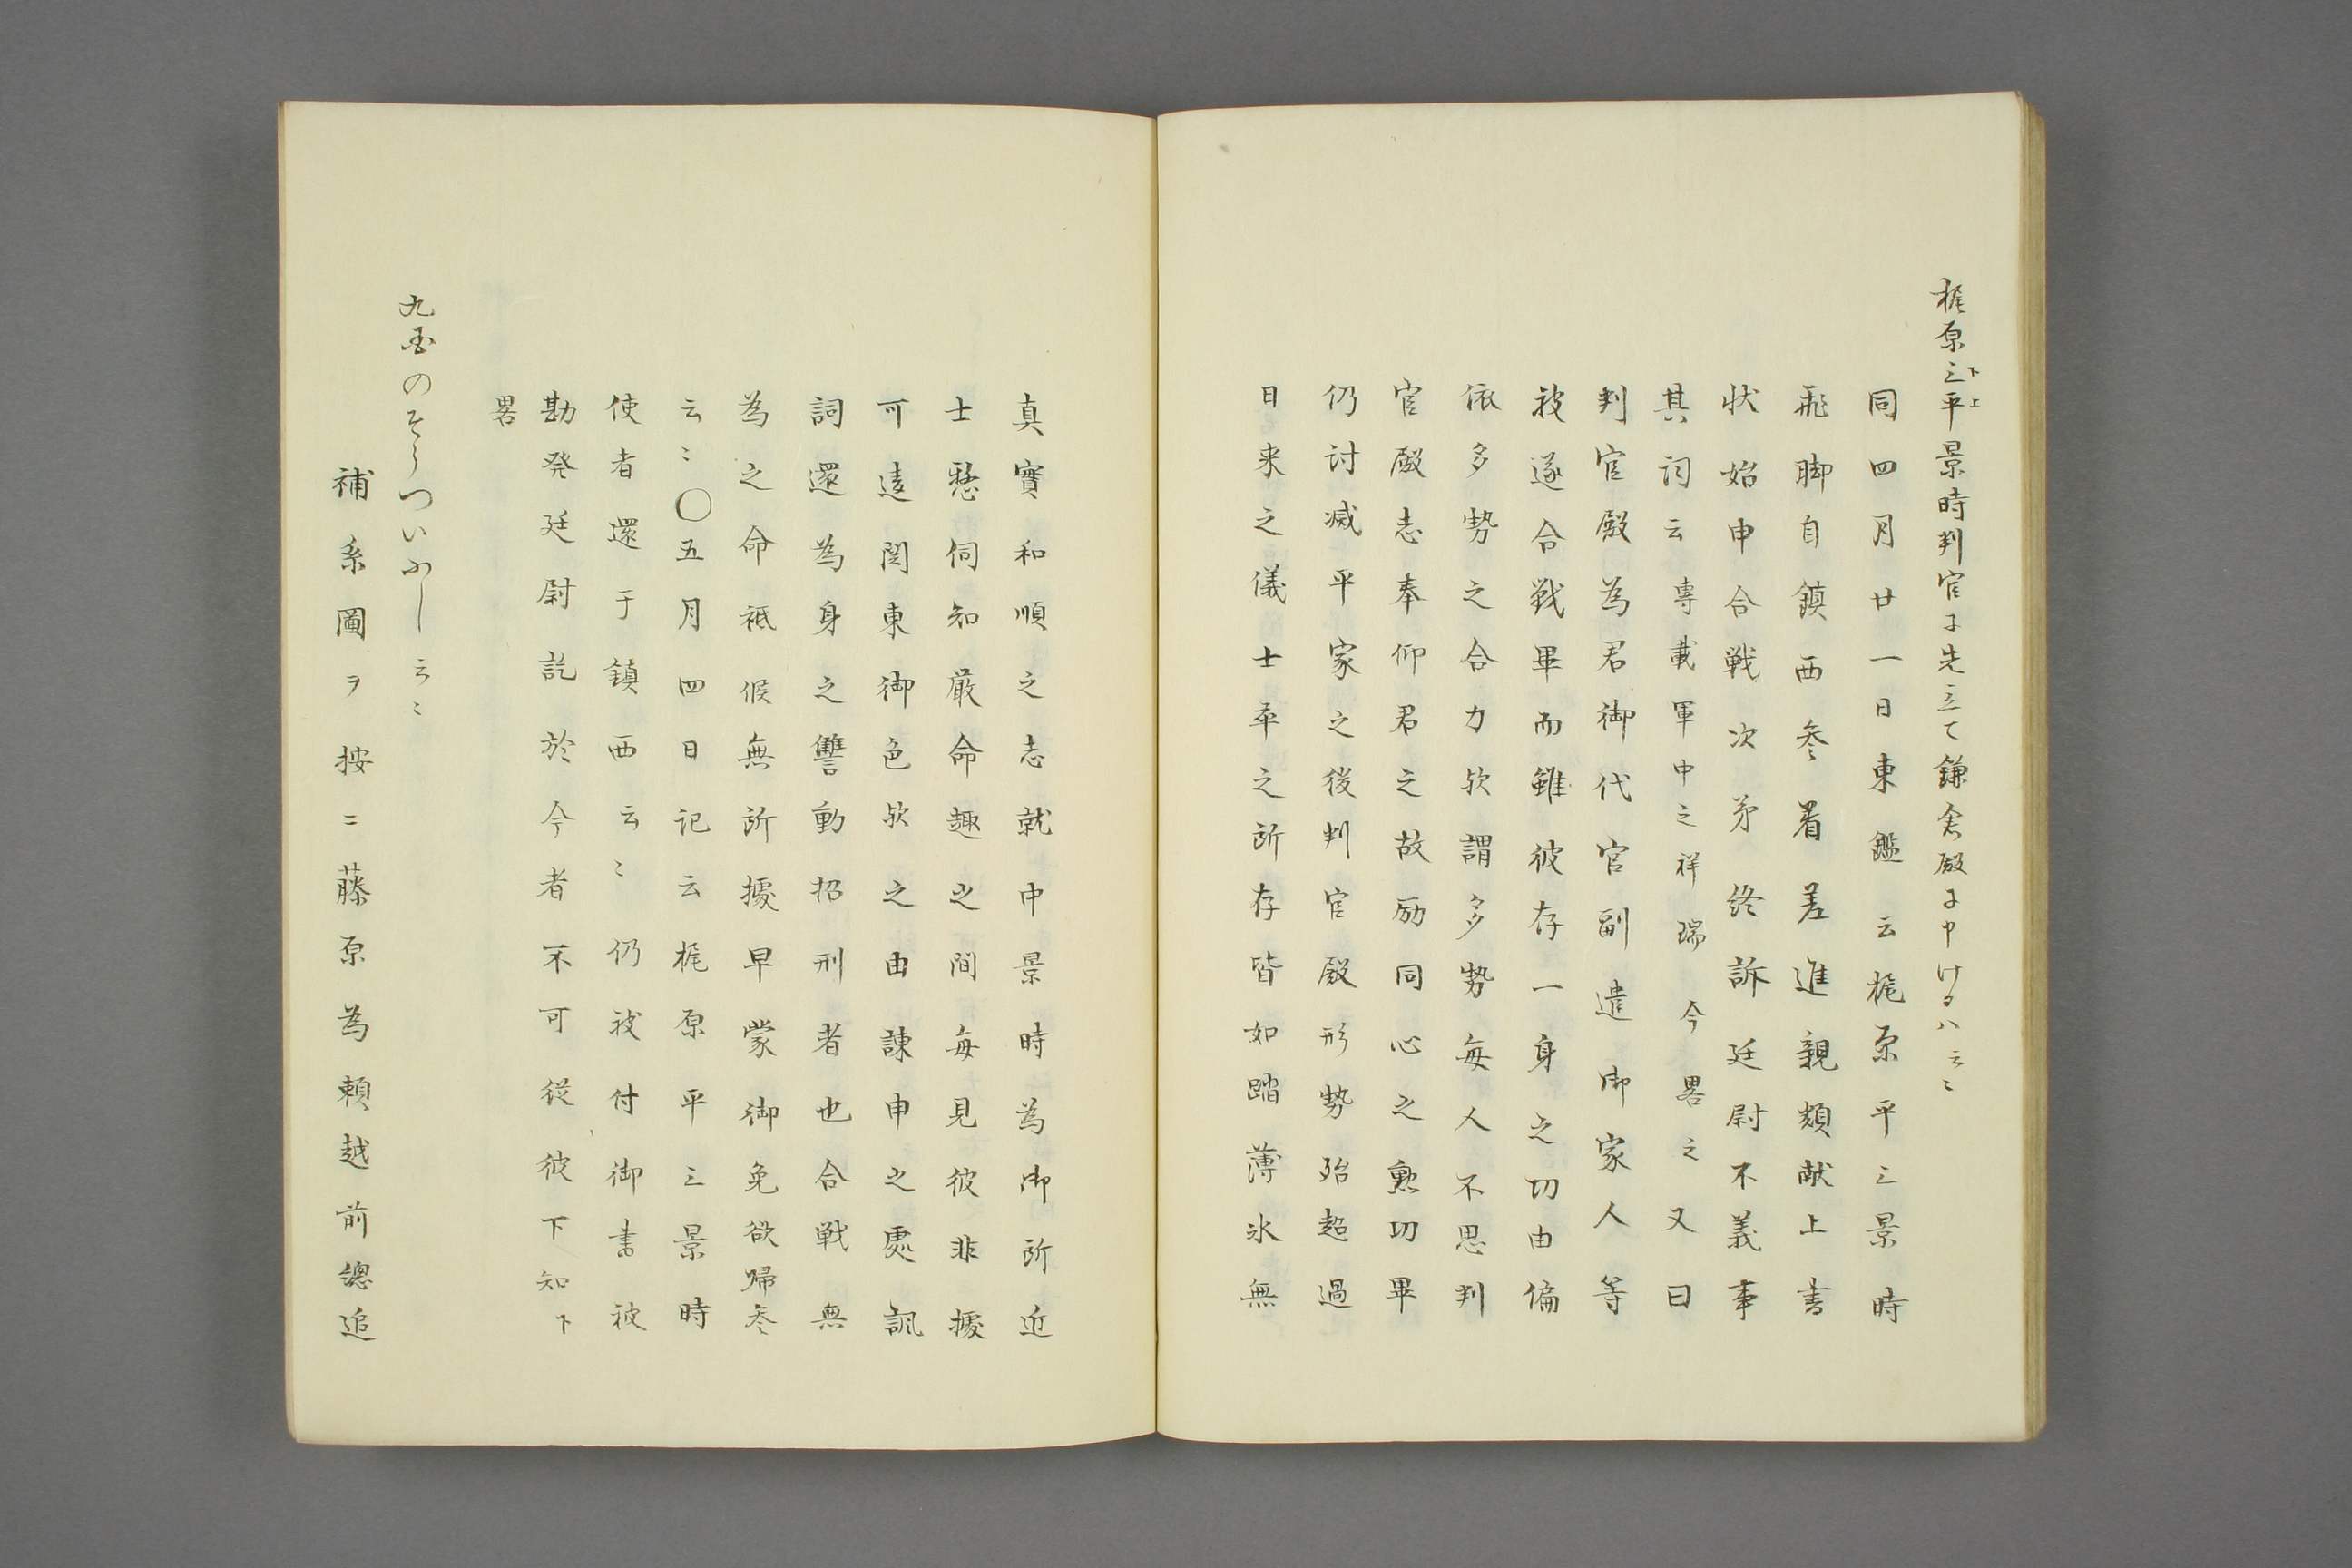 梶原三平景時判官に先立て鎌倉殿に申けるハ云〻
下上
同四月廿一日東鑑云梶原平三景時
飛脚自鎮西参着差進親類献上書
状始申合戦次㐧終訴廷尉不義事
其詞云専載軍中之祥瑞今畧之又曰
判官殿為君御代官副遣御家人等
被遂合戦畢而雖彼存一身之切由偏
依多勢之合力欤謂多勢毎人不思判
官殿志奉仰君之故励同心之勲切畢
仍討滅平家之後判官殿形勢殆超過
日来之儀士卒之所存皆如踏薄氷無
真實和順之志就中景時為御所近
士憖伺知厳命趣之間毎見彼非據
可違関東御色欤之由諌申之處諷
詞還為身之讐動招刑者也合戦無
為之命祗候無所據早蒙御免欲帰参
云〻〇五月四日記云梶原平三景時
使者還于鎮西云〻仍被付御書被
勘発廷尉訖於今者不可従彼下知下
畧
九国のそうついふし云〻
補系圖ヲ按ニ藤原為頼越前總追